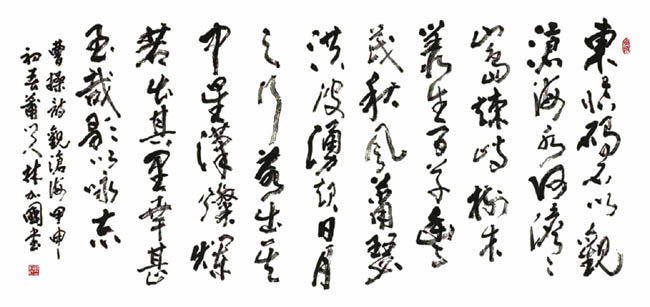 東臨碣石以觀
滄海水何澹〻
山島竦峙樹木
叢生百草豐
茂秋風蕭瑟
洪波湧起日月
之行若出其
中星漢燦爛
若出其里幸甚
至哉歌以咏志
曹操詩觀滄海甲申
初春莆人林加國書